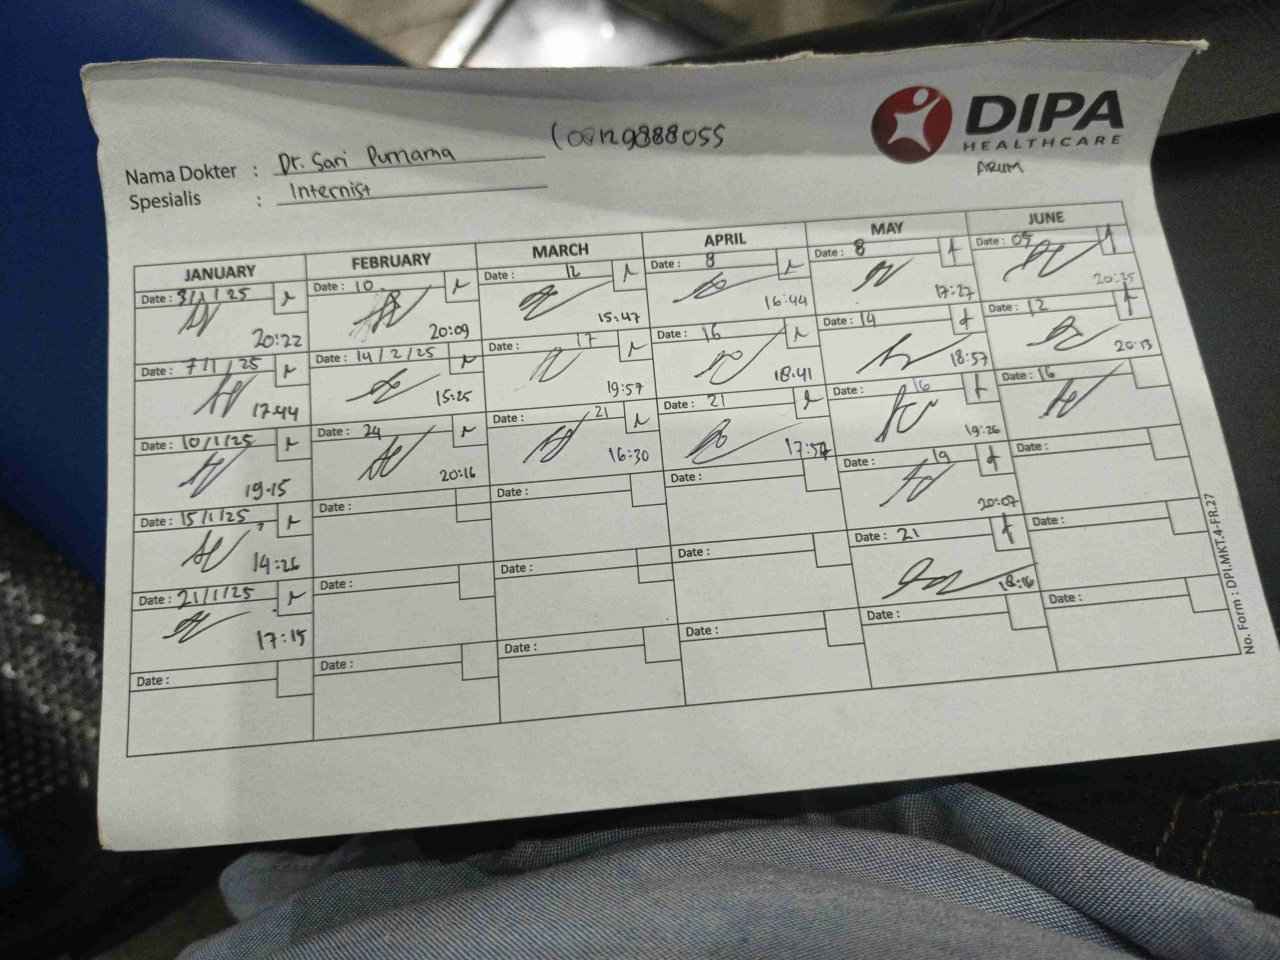 DIPA
HEALTHCARE
ARUM
(00129888055
Nama Dokter : Dr. Sari Purnama
Spesialis : Internist
JANUARY FEBRUARY MARCH APRIL MAY JUNE
Date : 3/1/25 Date : 10 Date : 12 Date : 8 Date : 8 Date : 05
20:22 20:09 15:47 16:44 17:27 20:35
Date : 7/1/25 Date : 14/2/25 Date : 17 Date : 16 Date : 14 Date : 12
17:44 15:25 19:57 18:41 18:57 20:13
Date : 10/1/25 Date : 24 Date : 21 Date : 21 Date : 16 Date : 16
19:15 20:16 16:30 19:26
Date : 15/1/25 Date : Date : Date : Date : 19 Date :
14:26 20:07
Date : 21/1/25 Date : Date : Date : Date : 21 Date :
17:15 18:16
Date : Date : Date : Date : Date : Date :
No. Form : DPI.MKT.4-FR.27